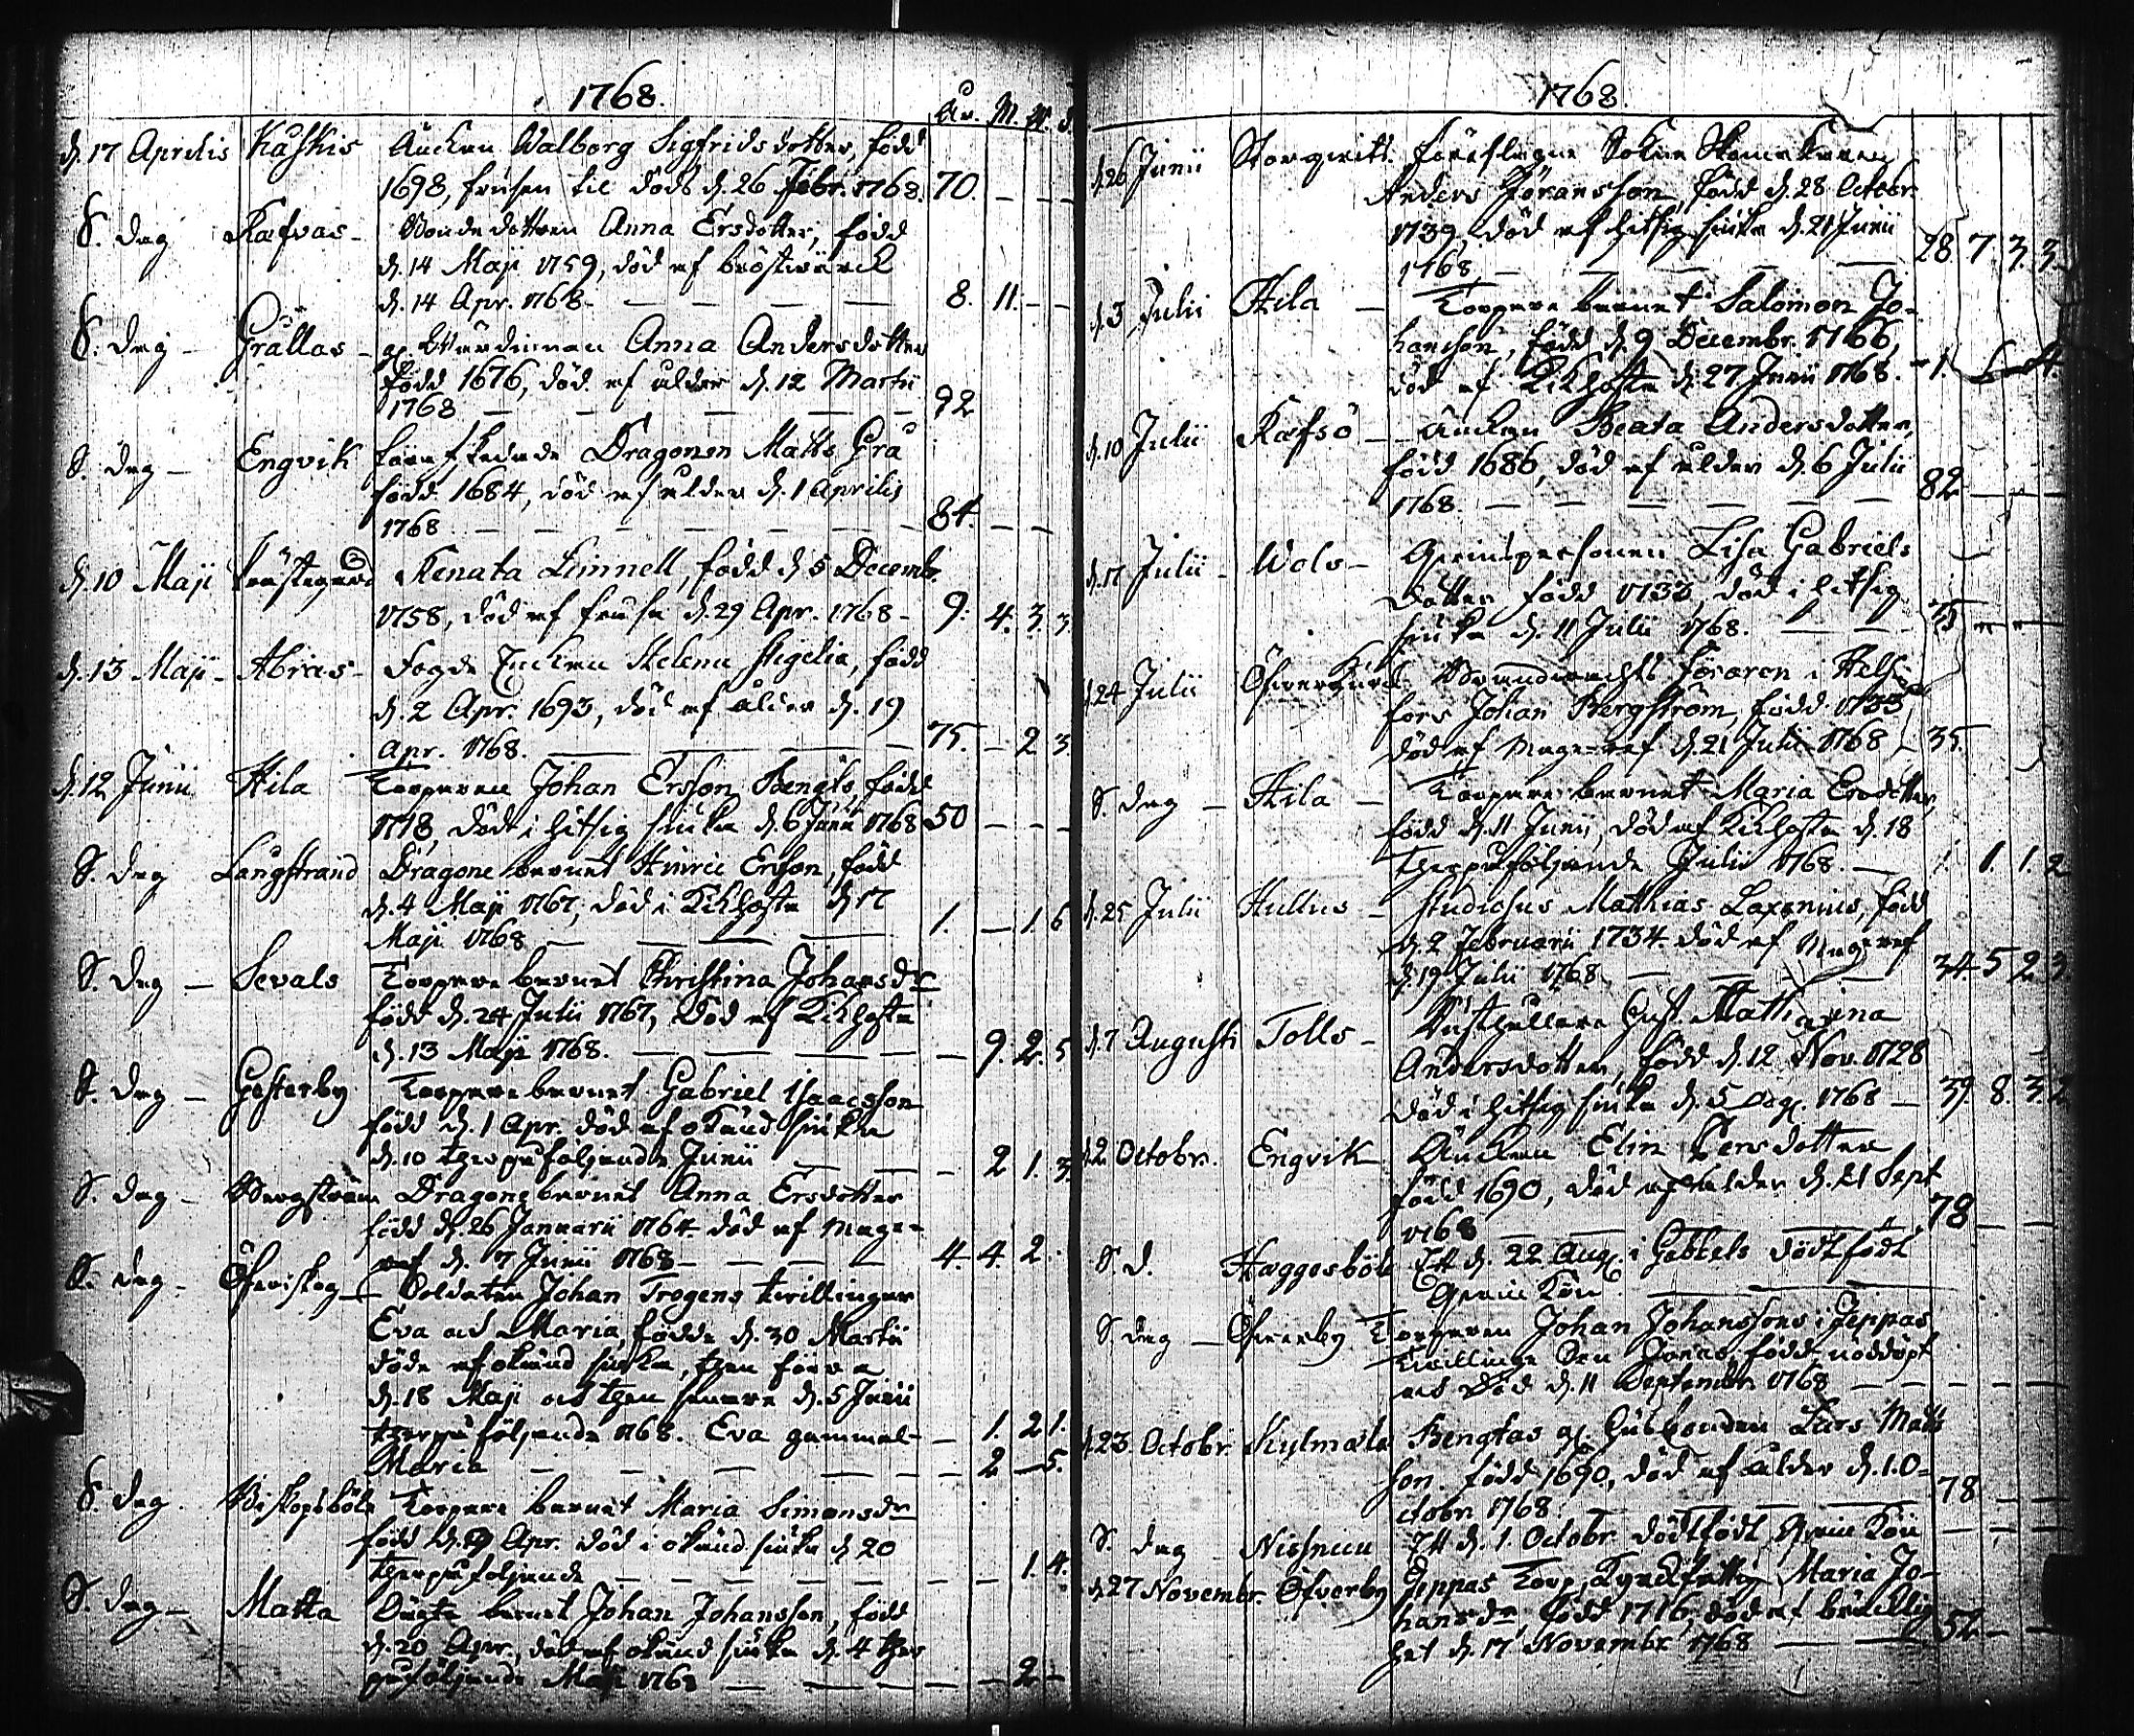 1768.
År. M. W. d.
d. 17 Aprilis Kaskis Änckan Walborg Sigfridsdotter, född
1698, frusen til döds d. 26 Febr. 1768. 70. — — —
S. dag Rafvas - Bondedottren Anna Ersdotter, född
d. 14 Maji 1759, död af bröstwärck
d. 14 Apr. 1768. — — — — 8. 11. - -
S. dag - Grällas - gl. Wärdinnan Anna Andersdotter
född 1676, död af ålder d. 12 Martii
1768 — — — — — 92
S. dag - Engvik Dragonen Matts Grå
född 1684, död af ålder d. 1 Aprilis
1768 — — — — — 84. — —
d. 10 Maji Prästegård Renata Limnell, född d. 5 Decemb.
1758, död af frusa d. 29 Apr. 1768 - 9. 4. 3. 3.
d. 13 Maji - Abras - Fogde Enckan Helena Stigelia, född
d. 2 Apr. 1693, död af ålder d. 19
Apr. 1768. — — — — 75. - 2 3.
d. 12 Junii Hila Torparen Johan Ersson Bengts, född
1718, död i hitsig siuka d. 6 Junii 1768 50 — — —
S. dag Långstrand Dragone barnet Hinric Ersson, född
d. 4 Maji 1767, död i Kikhosta d. 17
Maji 1768 — — — — 1. — 1. 6
S. dag — Sevals Torpare barnet Christina Johansdr
född d. 24 Julii 1767, död af Kikhosta
d. 13 Maji 1768. — — — — — 9. 2. 5
S. dag — Gesterby Torpare barnet Gabriel Isaacsson
född d. 1 Apr. död af okänd siuka
d. 10 therpåföljande Junii — — — 2 1. 3.
S. dag - Bergström Dragone barnet Anna Ersdotter
född d. 26 Januarii 1764. död af mage-
ref d. 7 Junii 1768 — — — — 4. 4. 2.
S. dag - Öfwitskog - Soldaten Johan Trogens twillingar
Eva och Maria, födde d. 30 Martii
döde af okänd siuka, then förra
d. 18 Maji och then senare d. 5 Junii
therpå följande 1768. Eva gammal - — 1. 2 1.
Maria — — — — — — 2 — 5.
S. dag Biskopsböle Torpare barnet Maria Simonsdr
född d. Apr. död i okänd siuka d. 20
therpåföljande — — — — — — — 1. 4.
S. dag - Matta barnet Johan Johansson, född
d. 20 Apr., död af okänd siuka d. 4 ther
påföljande Maji 1768 — — — — — 2 -
1768.
d. 26 Junii Storqwits. Sokne
Anders Jöransson, född d. 28 Octobr.
1739, död af hitsig siuka d. 21 Junii
1768 — — — — — 28 7. 3. 3.
d. 3 Julii Hila — Torpare barnet Salomon Jo-
hansson, född d. 9 Decembr. 1766,
död af Kikhosta d. 27 Junii 1768. - 1. 6 - 4.
d. 10 Julii Rafsö - Änckan Beata Andersdotter,
född 1686, död af ålder d. 6 Julii
1768. — — — — — — 82 — — —
d. 17 Julii - Wols - Qwinspersonen Lisa Gabriels-
dotter född 1733, död i hitsig
siuka d. 11 Julii 1768. — — 35 — — —
d. 24 Julii Öfwerkurk Föraren i Helsing-
fors Johan Bergström, född 1733
död af mage-ref d. 21 Julii 1768 - 35.
S. dag — Hila — Torpare barnet Maria Ersdotter,
född d. 11 Junii, död af Kikhosta d. 18
therpåföljande Julii 1768. — 1. 1. 2
d. 25 Julii Hullus - Studiosus Mathias Laxenius, född
d. 2 Februarii 1734. död af mageref
d. 19 Julii 1768 — — — — 34. 5 2. 3
d. 7 Augusti Tolls - Rusthållare Hust. Catharina
Andersdotter, född d. 12 Nov. 1728
död i hitsig siuka d. 5 Aug. 1768 — 39. 8. 3. 2
d. 2 Octobr. Engvik Änckan Elin Persdotter
född 1690, död af ålder d. 21 Sept
1768 — — — — 78 — —
S. d. Haggesböle Ett d. 22 Aug. i Gabbels dödtfödt
Qwinkön —
S. dag — Öfwerby Torparen Johan Johanssons i Jeppas
twillinge son Jonas, född nöddöpt
och död d. 11 Septembr. 1768 — — — — —
d. 23 Octobr. Kylmäla Bengtas gl. husbonden Lars Matts
son född 1690, död af ålder d. 1. O-
ctobr. 1768. — — — 78 — —
S. dag - Nissnuu Ett d. 1. Octobr. dödtfödt Qwinkön — — —
d. 27 Novembr. Öfverby Jeppas Torp, Maria Jo-
hansdr, född 1716, död af bräcklig
het d. 17 Novembr. 1768 — — 52 - —